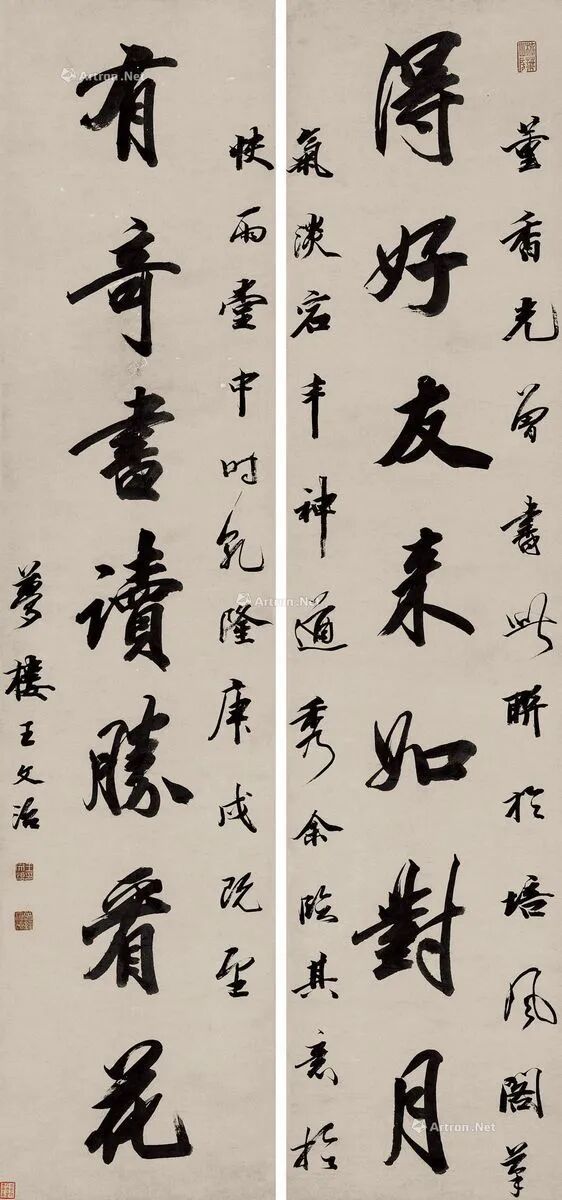 董香光曾書此联於培風閣筆
得好友来如對月
氣淡宕丰神遒秀余臨其意於
快雨堂中時乹隆庚戍既望
有奇書讀勝看花
夢樓王文治
Artron.Net
Artron.Net
Artron.Net
Artron.Net